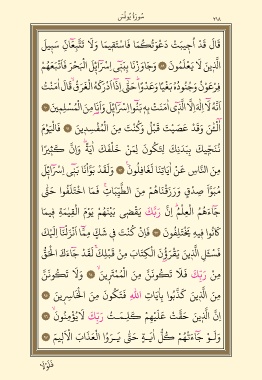 سُورَةُ يُونُسَ ٢١٨
قَالَ قَدْ اُجٖيبَتْ دَعْوَتُكُمَا فَاسْتَقٖيمَا وَلَا تَتَّبِعَٓانِّ سَبٖيلَ
الَّذٖينَ لَا يَعْلَمُونَ ﴿٨٩﴾ وَجَاوَزْنَا بِبَنٖٓي اِسْرَٓائٖلَ الْبَحْرَ فَاَتْبَعَهُمْ
فِرْعَوْنُ وَجُنُودُهُ بَغْيًا وَعَدْوًا حَتّٰٓى اِذَٓا اَدْرَكَهُ الْغَرَقُ قَالَ اٰمَنْتُ
اَنَّهُ لَٓا اِلٰهَ اِلَّا الَّذٖٓي اٰمَنَتْ بِهٖ بَنُٓوا اِسْرَٓائٖلَ وَاَنَا مِنَ الْمُسْلِمٖينَ ﴿٩٠﴾
آٰلْـٰٔنَ وَقَدْ عَصَيْتَ قَبْلُ وَكُنْتَ مِنَ الْمُفْسِدٖينَ ﴿٩١﴾ فَالْيَوْمَ
نُنَجّٖيكَ بِبَدَنِكَ لِتَكُونَ لِمَنْ خَلْفَكَ اٰيَةً وَاِنَّ كَثٖيرًا
مِنَ النَّاسِ عَنْ اٰيَاتِنَا لَغَافِلُونَ ﴿٩٢﴾ وَلَقَدْ بَوَّأْنَا بَنٖٓي اِسْرَٓائٖلَ
مُبَوَّاَ صِدْقٍ وَرَزَقْنَاهُمْ مِنَ الطَّيِّبَاتِ فَمَا اخْتَلَفُوا حَتّٰى
جَٓاءَهُمُ الْعِلْمُ اِنَّ رَبَّكَ يَقْضٖي بَيْنَهُمْ يَوْمَ الْقِيٰمَةِ فٖيمَا
كَانُوا فٖيهِ يَخْتَلِفُونَ ﴿٩٣﴾ فَاِنْ كُنْتَ فٖي شَكٍّ مِمَّٓا اَنْزَلْنَٓا اِلَيْكَ
فَسْـَٔلِ الَّذٖينَ يَقْرَؤُنَ الْكِتَابَ مِنْ قَبْلِكَ لَقَدْ جَٓاءَكَ الْحَقُّ
مِنْ رَبِّكَ فَلَا تَكُونَنَّ مِنَ الْمُمْتَرٖينَ ﴿٩٤﴾ وَلَا تَكُونَنَّ
مِنَ الَّذٖينَ كَذَّبُوا بِاٰيَاتِ اللّٰهِ فَتَكُونَ مِنَ الْخَاسِرٖينَ ﴿٩٥﴾
اِنَّ الَّذٖينَ حَقَّتْ عَلَيْهِمْ كَلِمَتُ رَبِّكَ لَا يُؤْمِنُونَ ﴿٩٦﴾
وَلَوْ جَٓاءَتْهُمْ كُلُّ اٰيَةٍ حَتّٰى يَرَوُا الْعَذَابَ الْاَلٖيمَ ﴿٩٧﴾
فَلَوْلَا